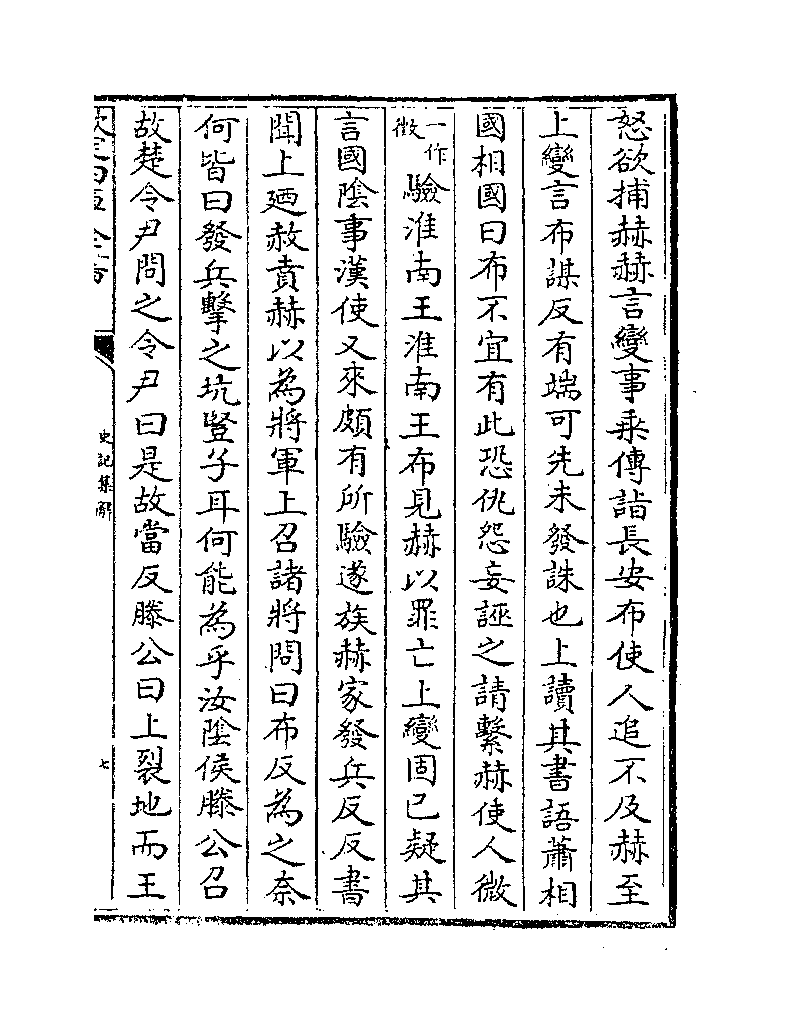 怒欲捕赫赫言變事乗傳詣長安布使人追不及赫至
上變言布謀反有端可先未發誅也上讀其書語蕭相
國相國曰布不宜有此恐仇怨妄誣之請繫赫使人微
一作
徵
驗淮南王淮南王布見赫以罪亡上變固已疑其
言國隂事漢使又來頗有所驗遂族赫家發兵反反書
聞上廼赦賁赫以為將軍上召諸將問曰布反為之奈
何皆曰發兵擊之坑豎子耳何能為乎汝隂侯滕公召
故楚令尹問之令尹曰是故當反滕公曰上裂地而王
欽定四庫全書
史記集解
七